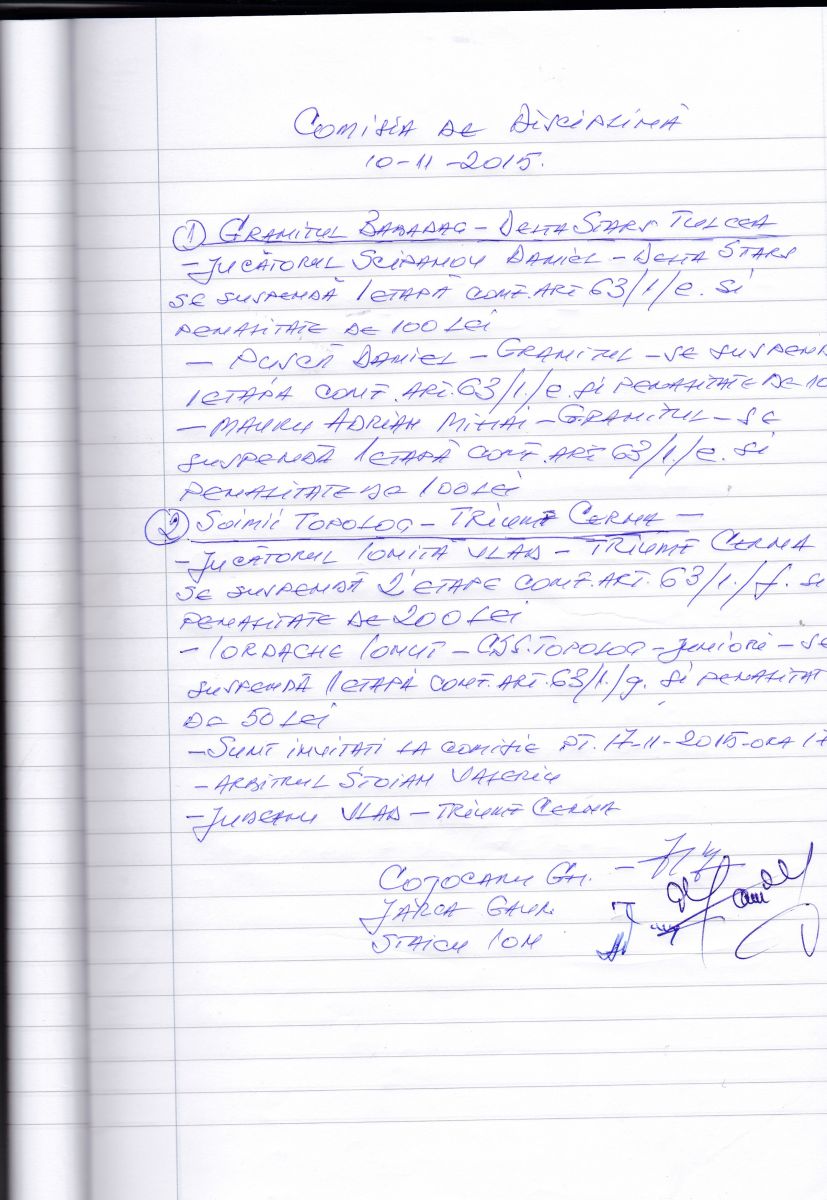 COMISIA DE DISCIPLINĂ
10-11-2015.
① GRANITUL BABADAG - DELTA STARS TULCEA
- JUCĂTORUL SCIPANOV DANIEL - DELTA STARS
SE SUSPENDĂ 1 ETAPĂ CONF. ART 63/1/e. SI
PENALITATE DE 100 LEI
- PUSCĂ DANIEL - GRANITUL - SE SUSPEN
1 ETAPĂ CONF. ART. 63/1./e. SI PENALITATE DE 10
- MAVRU ADRIAN MIHAI - GRANITUL - SE
SUSPENDĂ 1 ETAPĂ CONF. ART 63/1/e. SI
PENALITATE DE 100 LEI
② SOIMII TOPOLOG - TRIUMF CERNA -
- JUCĂTORUL IONITĂ VLAD - TRIUMF CERNA
SE SUSPENDĂ 2 ETAPE CONF. ART. 63/1./f. SI
PENALITATE DE 200 LEI
- IORDACHE IONUT - CSS. TOPOLOG - JUNIORI - SE
SUSPENDĂ 1 ETAPĂ CONF. ART. 63/1./g. SI PENALITAT
DE 50 LEI
- SUNT INVITATI LA COMISIE PT. 17-11-2015-ORA 17
- ARBITRUL STOIAN VALERIU
- JUDEANU VLAD - TRIUMF CERNA
COJOCARU GH. -
JARCA
STAICU ION